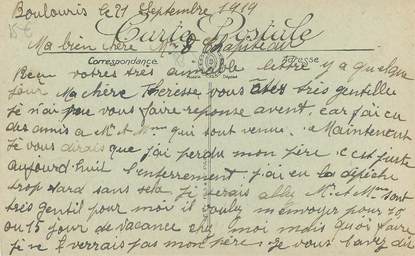 Boulouris le 21 Septembre 1919
Carte Postale
Ma bien chère Mme Chapiteau
Correspondance Adresse
Reçu votres très aimable lettre y a quelque
jour Ma chère Theresse vous êtes très gentille
je n'ai pue vous faire reponse avent. car j'ai eu
des amis a Mr et Mme qui sont venue. Maintenent
je vous dirais que j'ai perdu mon père. c'est juste
aujourd'huit l'enterrement. j'ai eu la dépêche
trop tard sans sela je serais allez Mr et Mme sont
très gentil pour moi il voulez m'envoyer pour 10
ou 15 jour de vacance chez moi mais quoi faire
je ne verrais pas mon père. je vous l'avez dit